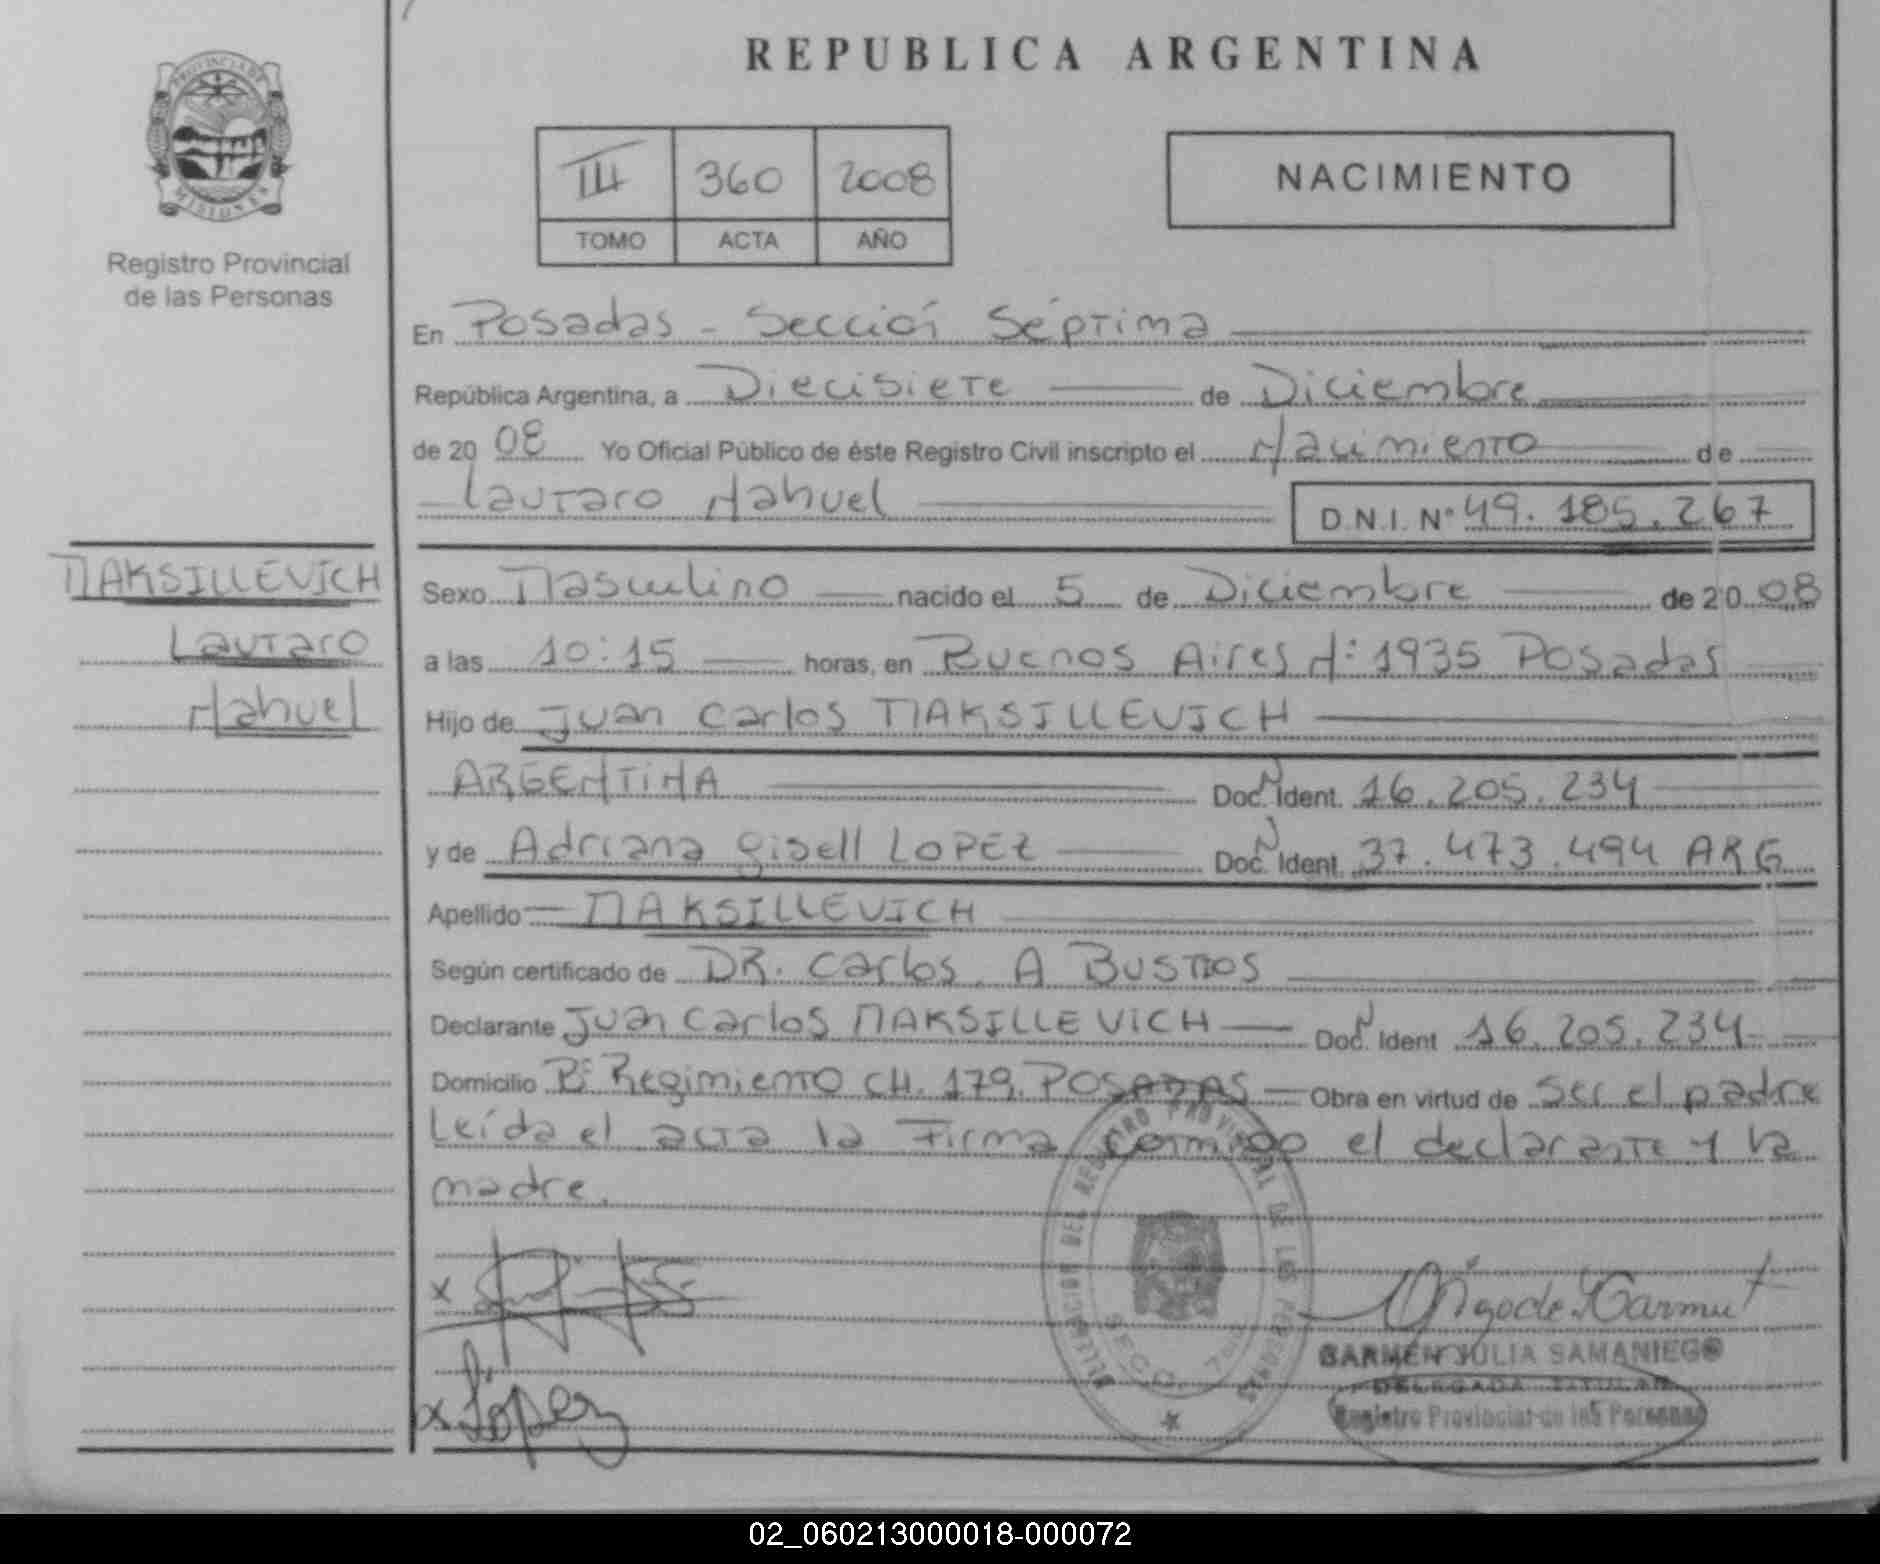 REPUBLICA ARGENTINA
PROVINCIA DE
MISIONES
Registro Provincial
de las Personas
III 360 2008
TOMO ACTA AÑO
NACIMIENTO
En Posadas - Sección Séptima
República Argentina, a Diecisiete de Diciembre
de 20 08 Yo Oficial Público de éste Registro Civil inscripto el Nacimiento de
Lautaro Nahuel D.N.I. Nº 49.185.267
MAKSILLEVICH
Lautaro
Nahuel
Sexo Masculino nacido el 5 de Diciembre de 20 08
a las 10:15 horas, en Buenos Aires N: 1935 Posadas
Hijo de Juan Carlos MAKSILLEVICH
ARGENTINA Doc. N Ident. 16.205.234
y de Adriana Gisell LOPEZ Doc. N Ident. 37.473.494 ARG
Apellido MAKSILLEVICH
Según certificado de DR. Carlos A BUSTOS
Declarante Juan Carlos MAKSILLEVICH Doc. N Ident 16.205.234
Domicilio Bº Regimiento CH. 179. POSADAS Obra en virtud de Ser el padre
Leída el acta la Firma conmigo el declarante y la
madre.
DELEGACION DEL REGISTRO PROVINCIAL DE LAS PERSONAS
SECC. 7ma
x
x López
CARMEN JULIA SAMANIEGO
DELEGADA TITULAR
Registro Provincial de las Personas
02_060213000018-000072